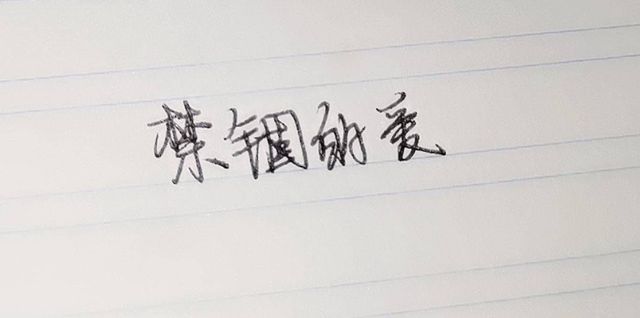 禁锢的爱